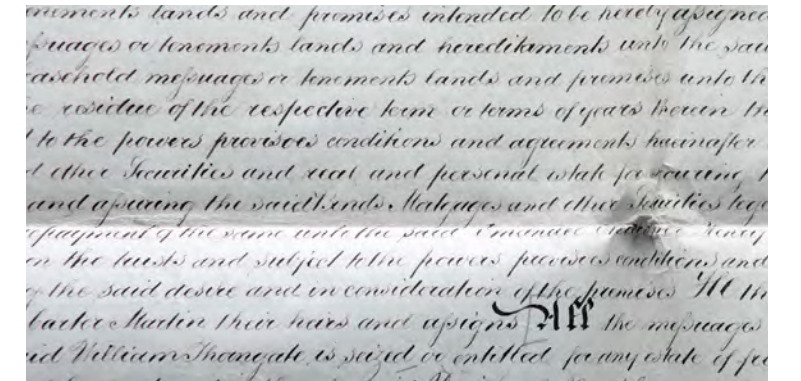 tenements lands and premises intended to be hereby assigned
messuages or tenements lands and hereditaments unto the said
leasehold messuages or tenements lands and premises unto th
e residue of the respective term or terms of years therein th
to the powers provisoes conditions and agreements hereinafter
d other Securities and real and personal estate for securing
and assuring the said Bonds Mortgages and other Securities toge
repayment of the same unto the said
on the trusts and subject to the powers provisoes conditions and
of the said desire and in consideration of the premises th
Martin their heirs and assigns All the messuages
id William is seized or entitled for any estate of fee